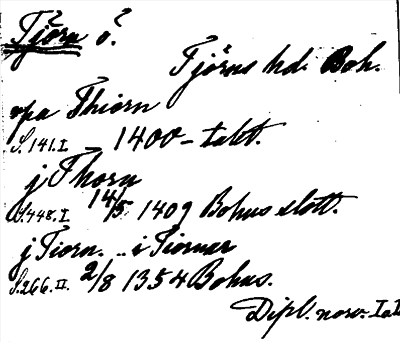 Tjörn ö.
Tjörns hd. Boh.
vpa Thiorn
S. 141. I 1400-talet.
j Thorn
S. 448. I 14/5 1409 Bohus slott.
j Tiorn. .. i Tiornar
S. 266. II. 2/8 1354 Bohus.
Dipl. norv. I